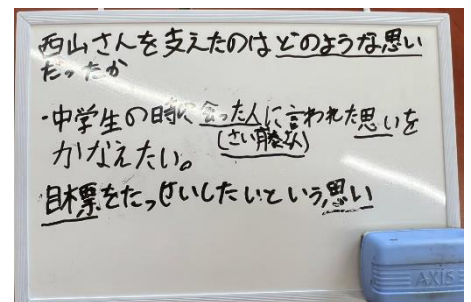 西山さんを支えたのはどのような思い
だったか
・中学生の時に会った人に言われた思いを
(さい藤さん)
かなえたい。
目標をたっせいしたいという思い
AXIS